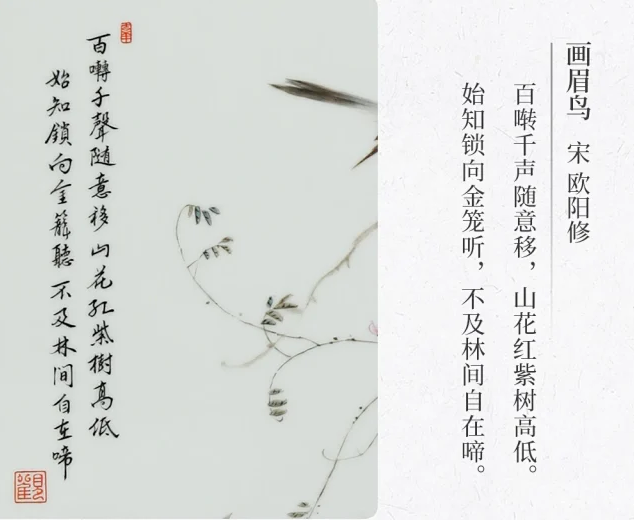 百囀千聲隨意移山花紅紫樹高低
始知鎖向金籠聽不及林间自在啼
画眉鸟 宋 欧阳修
百啭千声随意移，山花红紫树高低。
始知锁向金笼听，不及林间自在啼。